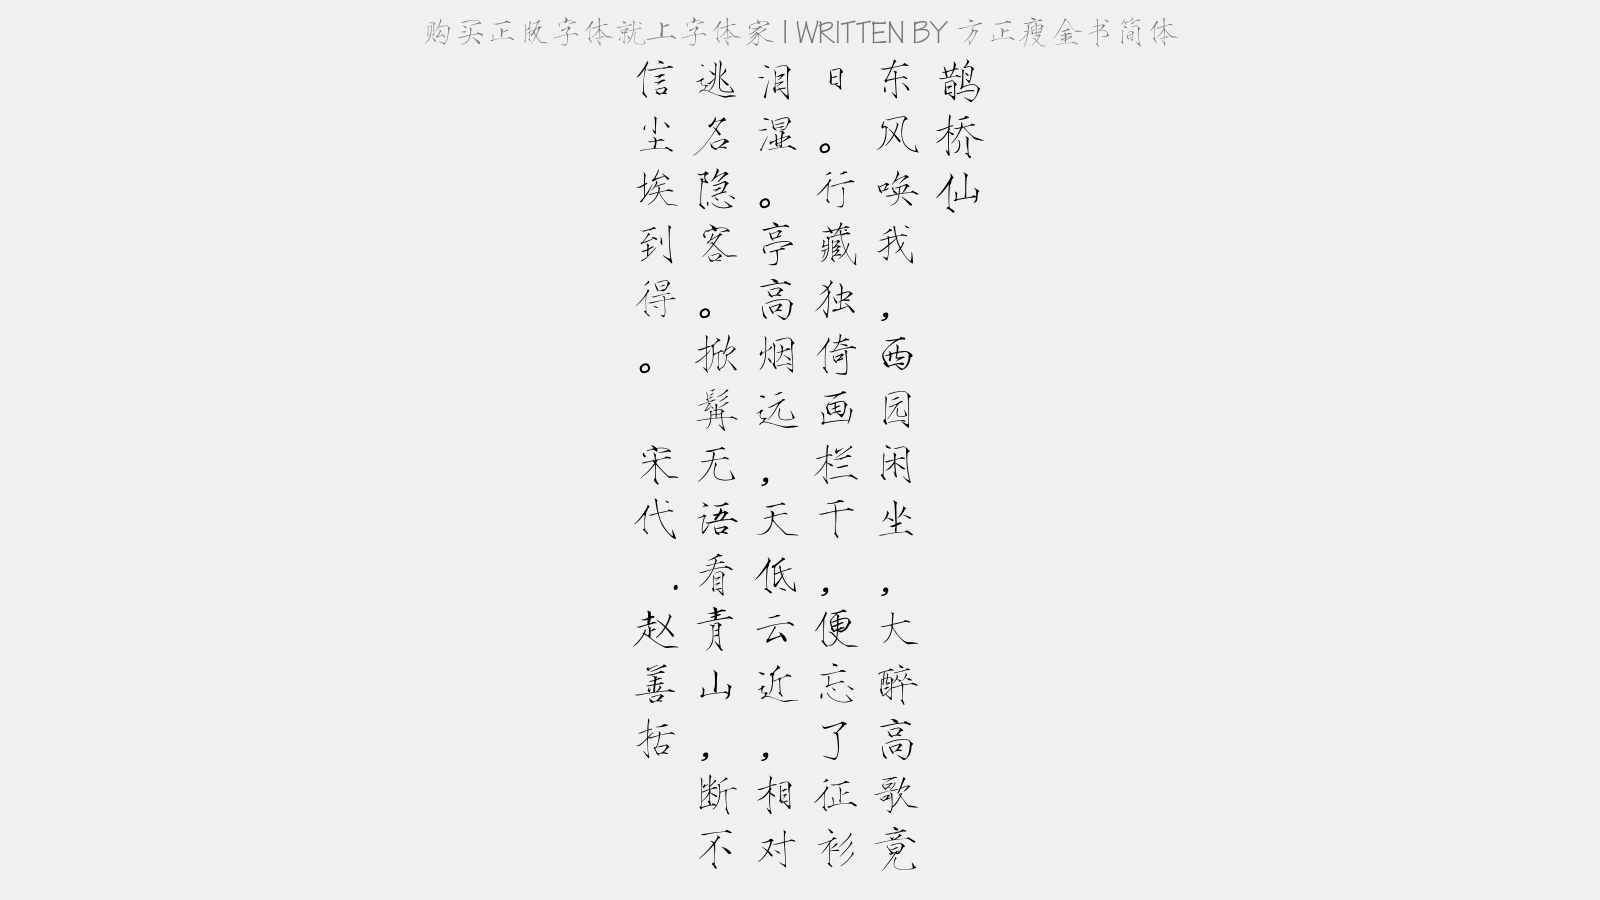 购买正版字体就上字体家 | WRITTEN BY 方正瘦金书简体
鹊桥仙
东风唤我，西园闲坐，大醉高歌竟
日。行藏独倚画栏干，便忘了征衫
泪湿。亭高烟远，天低云近，相对
逃名隐客。掀髯无语看青山，断不
信尘埃到得。 宋代.赵善括